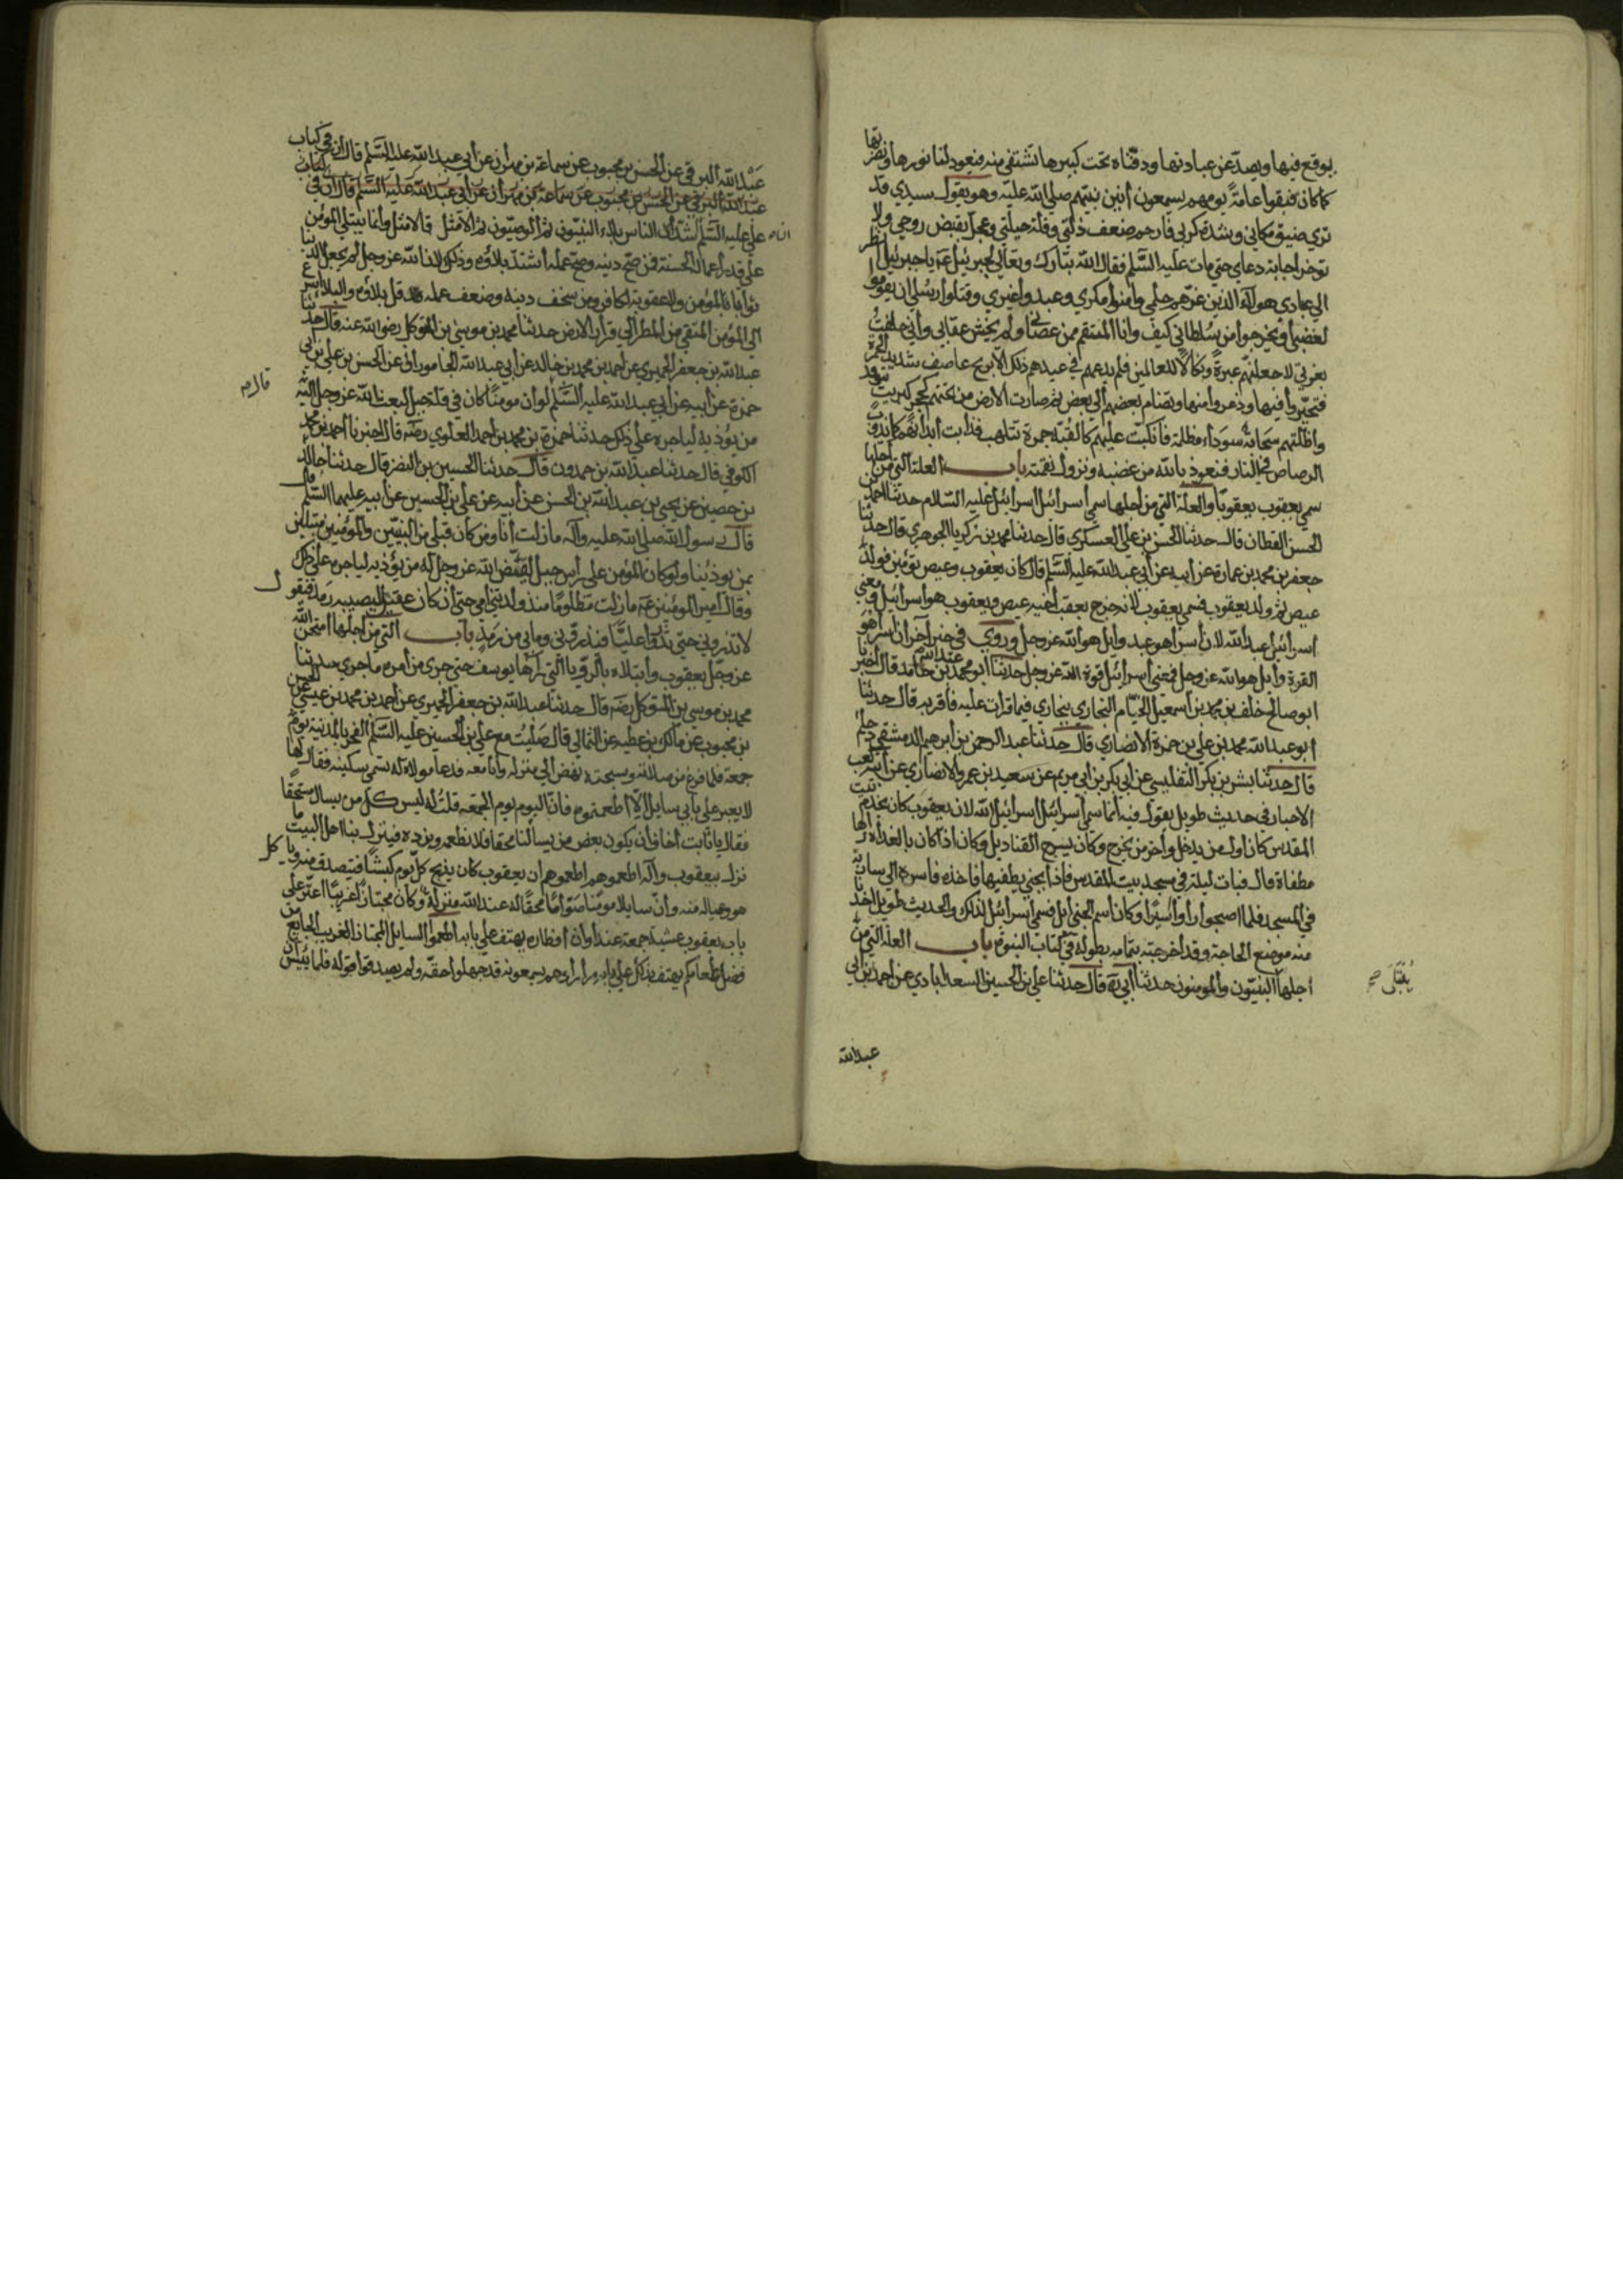 يوقع فيها ويصد عن عبادتها ودفناه تحت كبيرها نتشفى منه فيعود لنا نورها ونضرتها
كما كان فبقوا عامة يومهم يسمعون انين نبيهم صلى الله عليه وهو يقول سيدي قد
ترى ضيق مكاني وشدة كربي فارحم ضعف ذلتي وقلة حيلتي وعجل بقبض روحي ولا
توخر اجابة دعاى حتى مات عليه السلم فقال الله تبارك وتعالى لجبرئيل ع يا جبرئيل انظر
الى عبادي هولاء الذين غرهم حلمي وامنوا مكري وعبدوا غيري وقتلوا رسلي ان يقوموا
لغضبي او يخرجوا من سلطاني كيف وانا المنتقم ممن عصاني ولم يخش عقابي واني حلفت
بعزتي لاجعلنهم عبرة ونكالا للعالمين فلم يدعهم في عيدهم ذلك الا بريح عاصف شديد الحمرة
فتحيروا فيها وذعروا منها وتضام بعضهم الى بعض ثم صارت الارض من تحتهم كحجر كبريت تتوقد
واظلتهم سحابة سوداء مظلة فانكبت عليهم كالقبة جمرة تتلهب فذابت ابدانهم كما يذوب
الرصاص في النار فنعوذ بالله من غضبه ونزول نقمته باب العلة التي من اجلها
سمي يعقوب يعقوبا والعلة التي من اجلها سمي اسرائيل اسرائيل عليه السلام حدثنا احمد بن
الحسن القطان قال حدثنا الحسن بن علي العسكري قال حدثنا محمد بن زكريا الجوهري قال حدثنا
جعفر بن محمد بن عمارة عن ابيه عن ابي عبد الله عليه السلم قال كان يعقوب وعيص توئمين فولد
عيص ثم ولد يعقوب فسمي يعقوب لانه خرج بعقب اخيه عيص ويعقوب هو اسرائيل ومعنى
اسرائيل عبد الله لان اسرا هو عبد وايل هو الله عز وجل وروي في خبر آخر ان اسرا هو
القوة وايل هو الله عز وجل فمعنى اسرائيل قوة الله عز وجل حدثنا ابو محمد عبد الله بن حامد قال اخبرنا
ابو صالح خلف بن محمد بن اسمعيل الخيام البخاري ببخاري فيما قرات عليه فاقر به قال حدثنا
ابو عبد الله محمد بن علي بن حمزة الانصاري قال حدثنا عبد الرحمن بن ابرهيم الدمشقي دحيم
قال حدثنا بشر بن بكر التفليسي عن ابي بكر بن ابي مريم عن سعيد بن عمرو الانصاري عن ابيه عن كعب
الاحبار في حديث طويل يقول فيه انما سمي اسرائيل اسرائيل الله لان يعقوب كان يخدم بيت
المقدس كان اول من يدخل وآخر من يخرج وكان يسرج القناديل وكان اذا كان بالغداة راها
مطفاة قال فبات ليلة في مسجد بيت المقدس فاذا بجني يطفيها فاخذه فاسره الى سارية
في المسجد فلما اصبحوا راوا اسيرا وكان اسم الجني ايل فسمي اسرائيل لذلك والحديث طويل اخذنا
منه موضع الحاجة وقد اخرجته بتمامه بطوله في كتاب النبوة باب العلة التي من
اجلها النبيون والمومنون حدثنا ابي ره قال حدثنا علي بن الحسين السعدابادي عن احمد بن ابي
يبتلى صح
عبد الله
عبد الله البرقي عن الحسن بن محبوب عن سماعة بن مهران عن ابي عبد الله عليه السلم قال ان في كتاب
عبد الله البرقي عن الحسن بن محبوب عن سماعة بن مهران عن ابي عبد الله عليه السلم قال ان في كتاب
علي عليه السلم ان اشد الناس بلاء النبيون ثم الوصيون ثم الامثل فالامثل وانما يبتلى المومن
على قدر اعماله الحسنة فمن صح دينه وصح عمله اشتد بلاؤه وذلك ان الله عز وجل لم يجعل الدنيا
ثوابا للمؤمن ولا عقوبة لكافر ومن سخف دينه وضعف عمله قل بلاؤه والبلاء اسرع
الى المؤمن المتقي من المطر الى قرار الارض حدثنا محمد بن موسى بن المتوكل رضوا الله عنه قال حدثنا
عبد الله بن جعفر الحميري عن احمد بن محمد بن خالد عن ابي عبد الله الجاموراني عن الحسن بن علي بن ابي
حمزة عن ابيه عن ابي عبد الله عليه السلم لو ان مومنا كان في قلة جبل لبعث الله عز وجل اليه
قال صح
من يؤذيه لياجره على ذلك حدثنا حمزة بن محمد بن احمد العلوي رضه قال اخبرنا احمد بن محمد
الكوفي قال حدثنا عبد الله بن حمدون قال حدثنا الحسين بن النضر قال حدثنا خالد
بن حصين عن يحيى بن عبد الله بن الحسن عن ابيه عن علي بن الحسين عن ابيه عليهما السلم قال
قال رسول الله صلى الله عليه وآله ما زلت انا ومن كان قبلي من النبيين والمؤمنين مبتلين
بمن يوذينا ولو كان المؤمن على راس جبل لقيض الله عز وجل له من يؤذيه لياجره على ذلك
وقال امير المؤمنين ع ما زلت مظلوما منذ ولدتني امي حتى ان كان عقيل ليصيبه رمد فيقول
لا تذروني حتى تذروا عليا فيذروني وما بي من رمد باب التي من اجلها امتحن الله
عز وجل يعقوب وابتلاه بالرويا التي رآها يوسف حتى جرى من امره ما جرى حدثنا
محمد بن موسى بن المتوكل رضه قال حدثنا عبد الله بن جعفر الحميري عن احمد بن محمد بن عيسى عن الحسن
بن محبوب عن مالك بن عطيه عن الثمالي قال صليت مع علي بن الحسين عليه السلم الفجر بالمدينة يوم
جمعة فلما فرغ من صلاته وسبحته نهض الى منزله وانا معه فدعا مولاة له تسمى سكينه فقال لها
لا يعبر على بابي سايل الا اطعمتموه فان اليوم يوم الجمعة قلت له ليس كل من يسال مستحقا
فقال يا ثابت اخاف ان يكون بعض من يسالنا محقا فلا نطعمه ونرده فينزل بنا اهل البيت ما
نزل بيعقوب وآله اطعموهم اطعموهم ان يعقوب كان يذبح كل يوم كبشا فيتصدق منه وياكل
هو وعياله منه وان سايلا مومنا صواما محقا له عند الله منزلة وكان مجتازا غريبا اعتر على
باب يعقوب عشية جمعة عند اوان افطاره يهتف على بابه اطعموا السايل المجتاز الغريب الجايع من
فضل طعامكم يهتف بذلك على بابه مرارا وهم يسمعونه قد جهلوا حقه ولم يصدقوا قوله فلما يئس ان